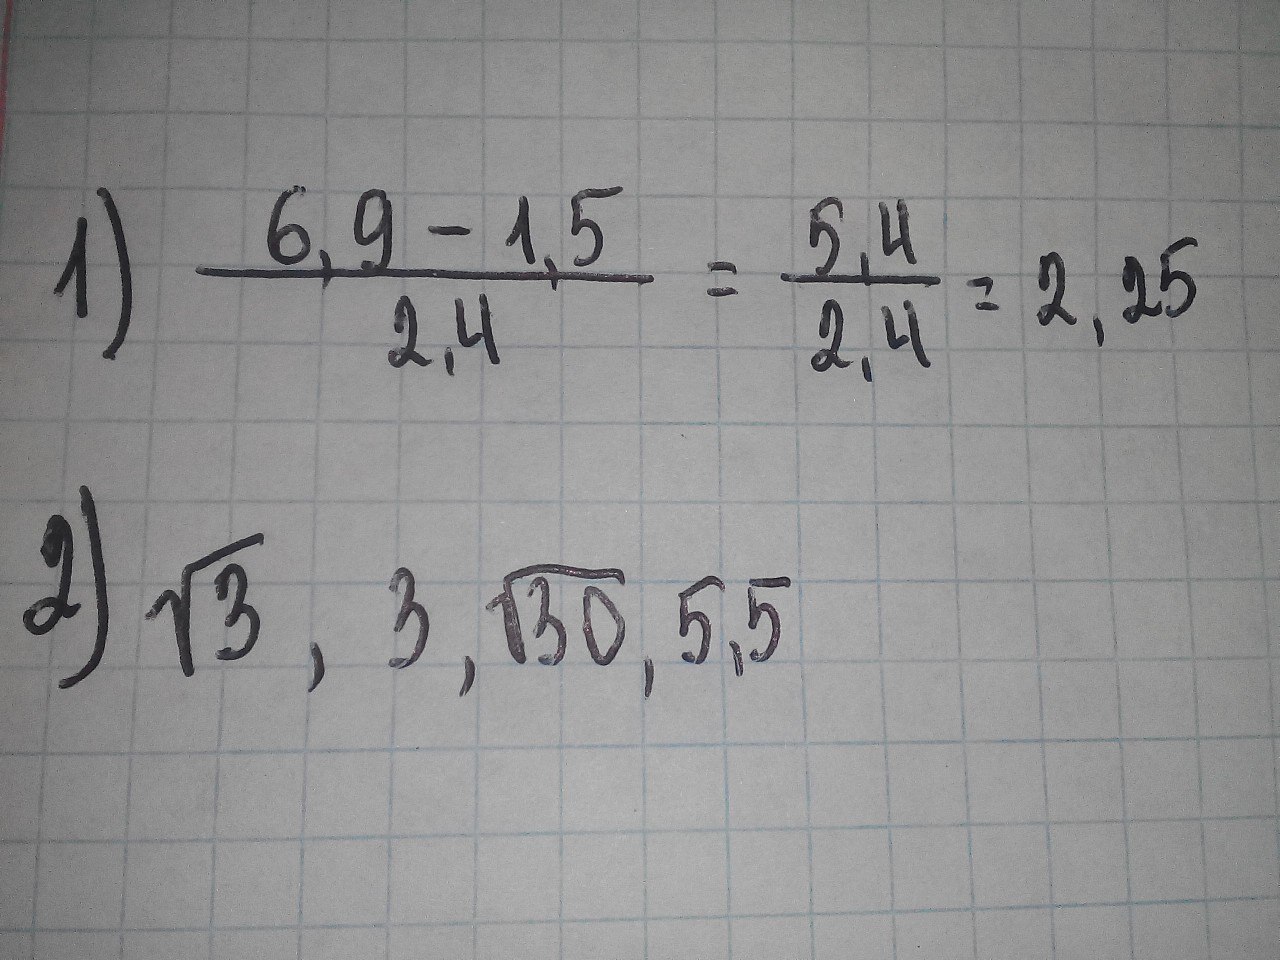 1) (6,9 - 1,5)/2,4 = 5,4/2,4 = 2,25
2) √3, 3, √30, 5,5